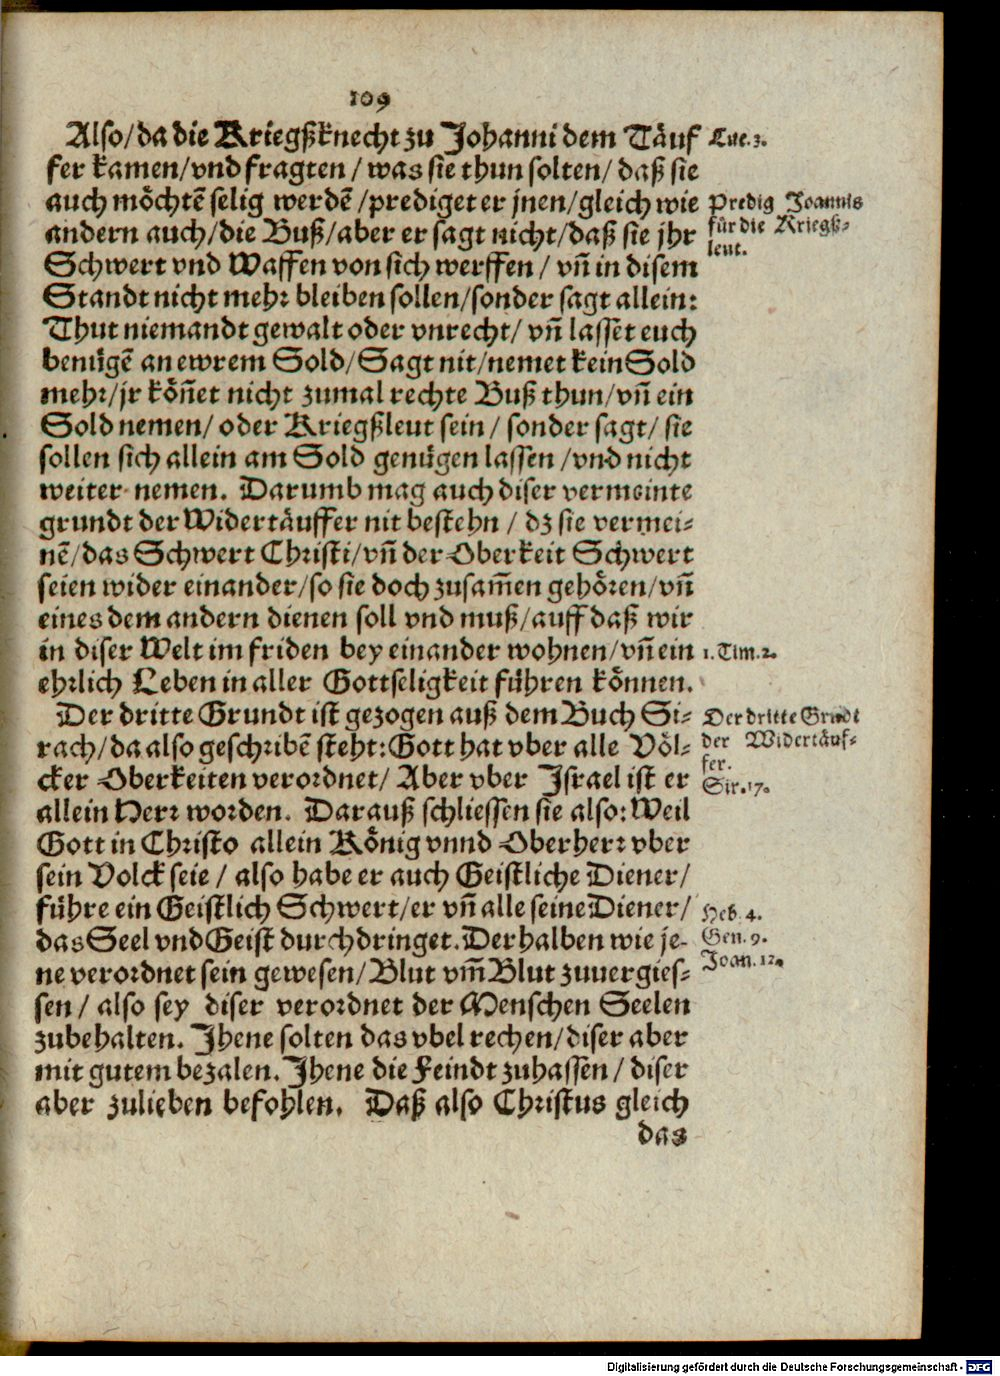 109
Also/da die Kriegßknecht zu Johanni dem Täuf
fer kamen/vnd fragten / was sie thun solten/ daß sie
auch möchtē selig werdē /prediget er jnen/gleich wie
andern auch/die Buß/aber er sagt nicht/daß sie jhr
Schwert vnd Waffen von sich werffen / vñ in disem
Standt nicht mehr bleiben sollen/sonder sagt allein:
Thut niemandt gewalt oder vnrecht/ vñ lassēt euch
benügē an ewrem Sold/Sagt nit/nemet kein Sold
mehr/jr köñet nicht zumal rechte Buß thun/vñ ein
Sold nemen/ oder Kriegßleut sein / sonder sagt/ sie
sollen sich allein am Sold genügen lassen /vnd nicht
weiter nemen. Darumb mag auch diser vermeinte
grundt der Widertäuffer nit bestehn / dz sie vermei-
nē/das Schwert Christi/vñ der Oberkeit Schwert
seien wider einander/so sie doch zusam̃en gehören/vñ
eines dem andern dienen soll vnd muß/auff daß wir
in diser Welt im friden bey einander wohnen/vñ ein
ehrlich Leben in aller Gottseligkeit führen können.
Der dritte Grundt ist gezogen auß dem Buch Si-
rach/da also geschribē steht:Gott hat vber alle Völ-
cker Oberkeiten verordnet/ Aber vber Israel ist er
allein Herr worden. Darauß schliessen sie also:Weil
Gott in Christo allein König vnnd Oberherr vber
sein Volck seie / also habe er auch Geistliche Diener/
führe ein Geistlich Schwert/er vñ alle seine Diener/
das Seel vnd Geist durchdringet.Derhalben wie je-
ne verordnet sein gewesen/Blut vm̃ Blut zuuergies-
sen / also sey diser verordnet der Menschen Seelen
zubehalten. Jhene solten das vbel rechen/diser aber
mit gutem bezalen.Jhene die Feindt zuhassen / diser
aber zulieben befohlen. Daß also Christus gleich
das
Luc.3.
Predig Joannis
für die Kriegß-
leut.
1.Tim.2.
Der dritte Grūdt
der Widertäuf-
fer.
Sir.17.
Heb.4.
Gen.9.
Joan.12.
Digitalisierung gefördert durch die Deutsche Forschungsgemeinschaft - DFG